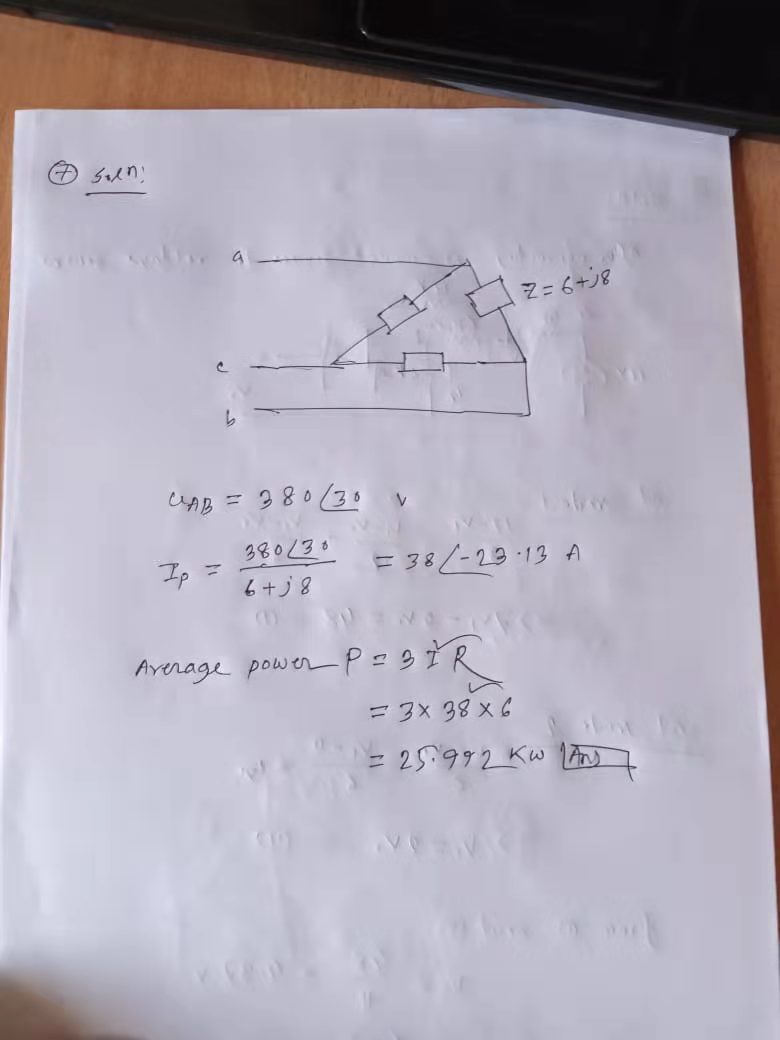 ⑦ Soln:
a
Z = 6+j8
c
b
UAB = 380∠30 V
Ip = 380∠30 / 6+j8 = 38∠-23.13 A
Average power P = 3 I² R
= 3 x 38² x 6
= 25.992 KW Ans